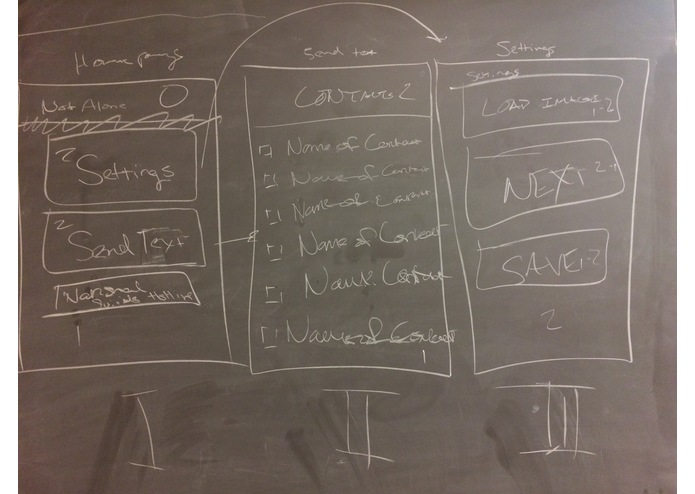 Homepage
Not Alone
2 Settings
2 Send Text
National
Suicide Hotline
1
I
Send text
CONTACTS 2
Name of Contact
Name of Contact
Name of Contact
Name of Contact
Name. Contact
Name of Contact
1
II
Settings
Settings
LOAD IMAGE 1-2
NEXT 2-1
SAVE 1-2
2
III